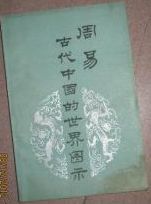 周易
古代中国的世界图示